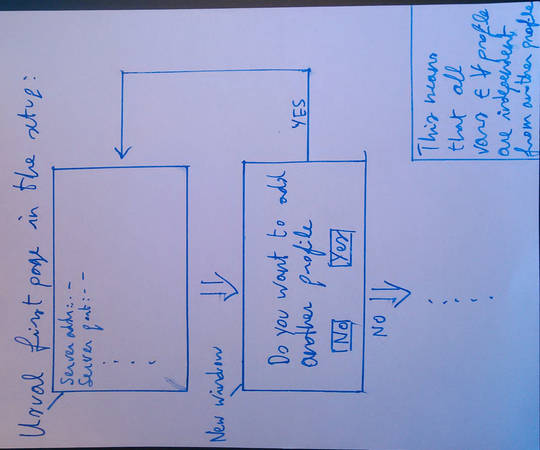 Usual first page in the setup:
Server addr:--
Server port:--
New window
Do you want to add
another profile
No Yes
YES
NO
This means
that all
vars ∈ ∀ profile
are independent
from another profile